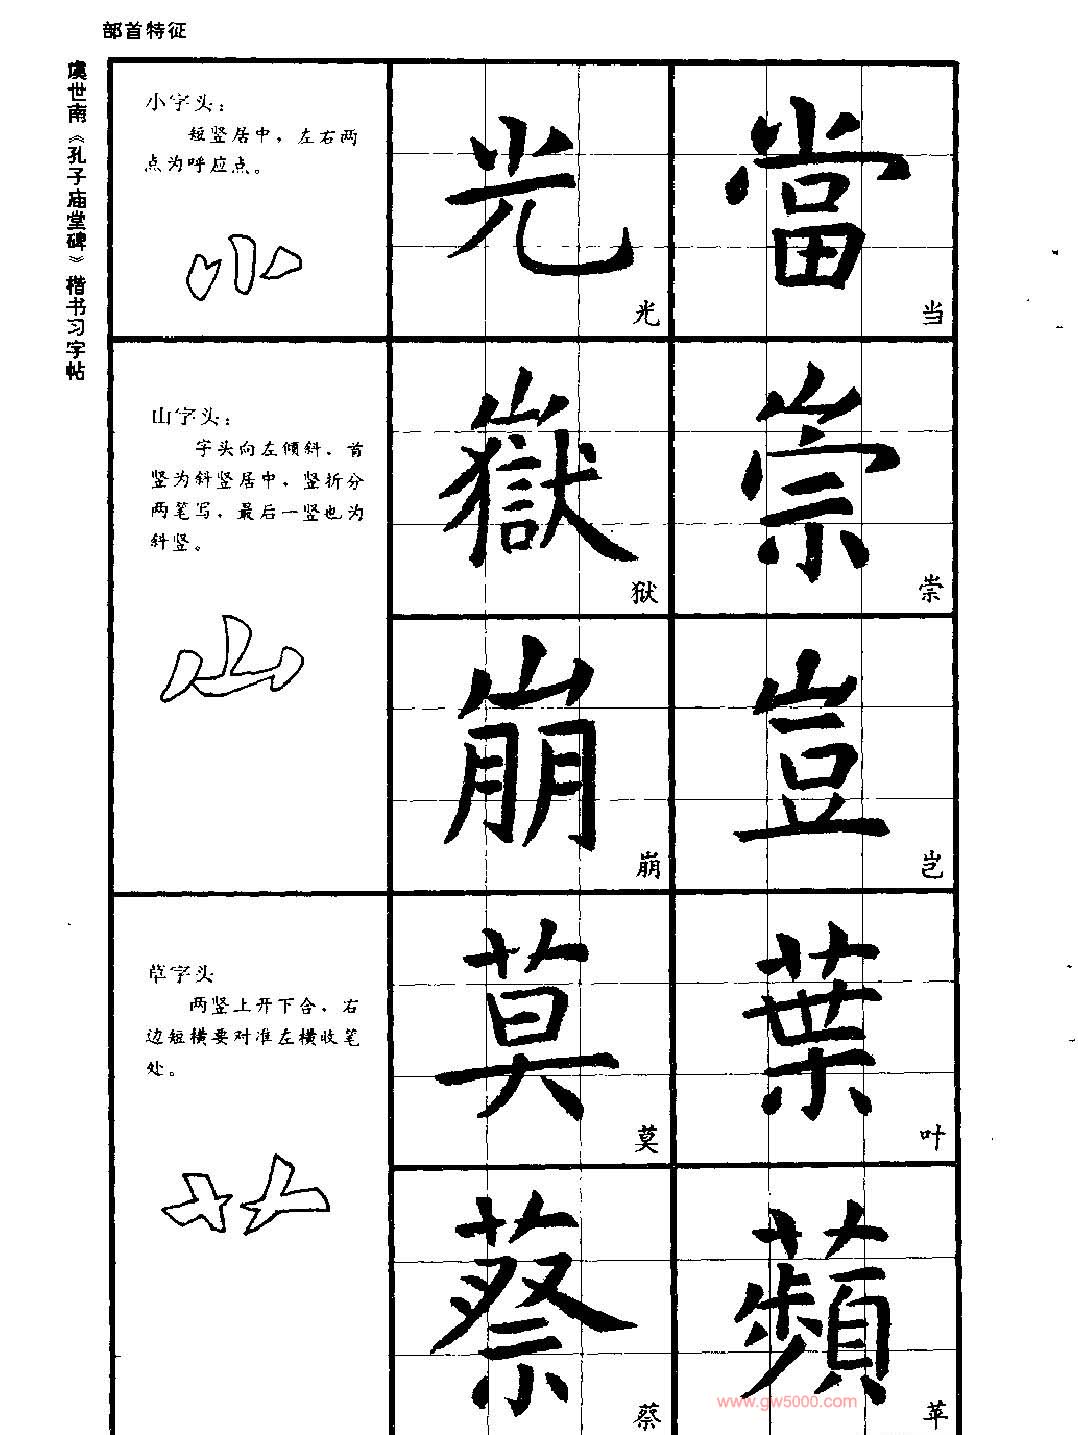 部首特征
虞世南《孔子庙堂碑》楷书习字帖
小字头：
短竖居中，左右两
点为呼应点。
光
光
當
当
山字头：
字头向左倾斜，首
竖为斜竖居中，竖折分
两笔写，最后一竖也为
斜竖。
嶽
狱
崇
崇
崩
崩
豈
岂
草字头
两竖上开下合，右
边短横要对准左横收笔
处。
莫
莫
葉
叶
蔡
蔡
蘋
苹
www.gw5000.com